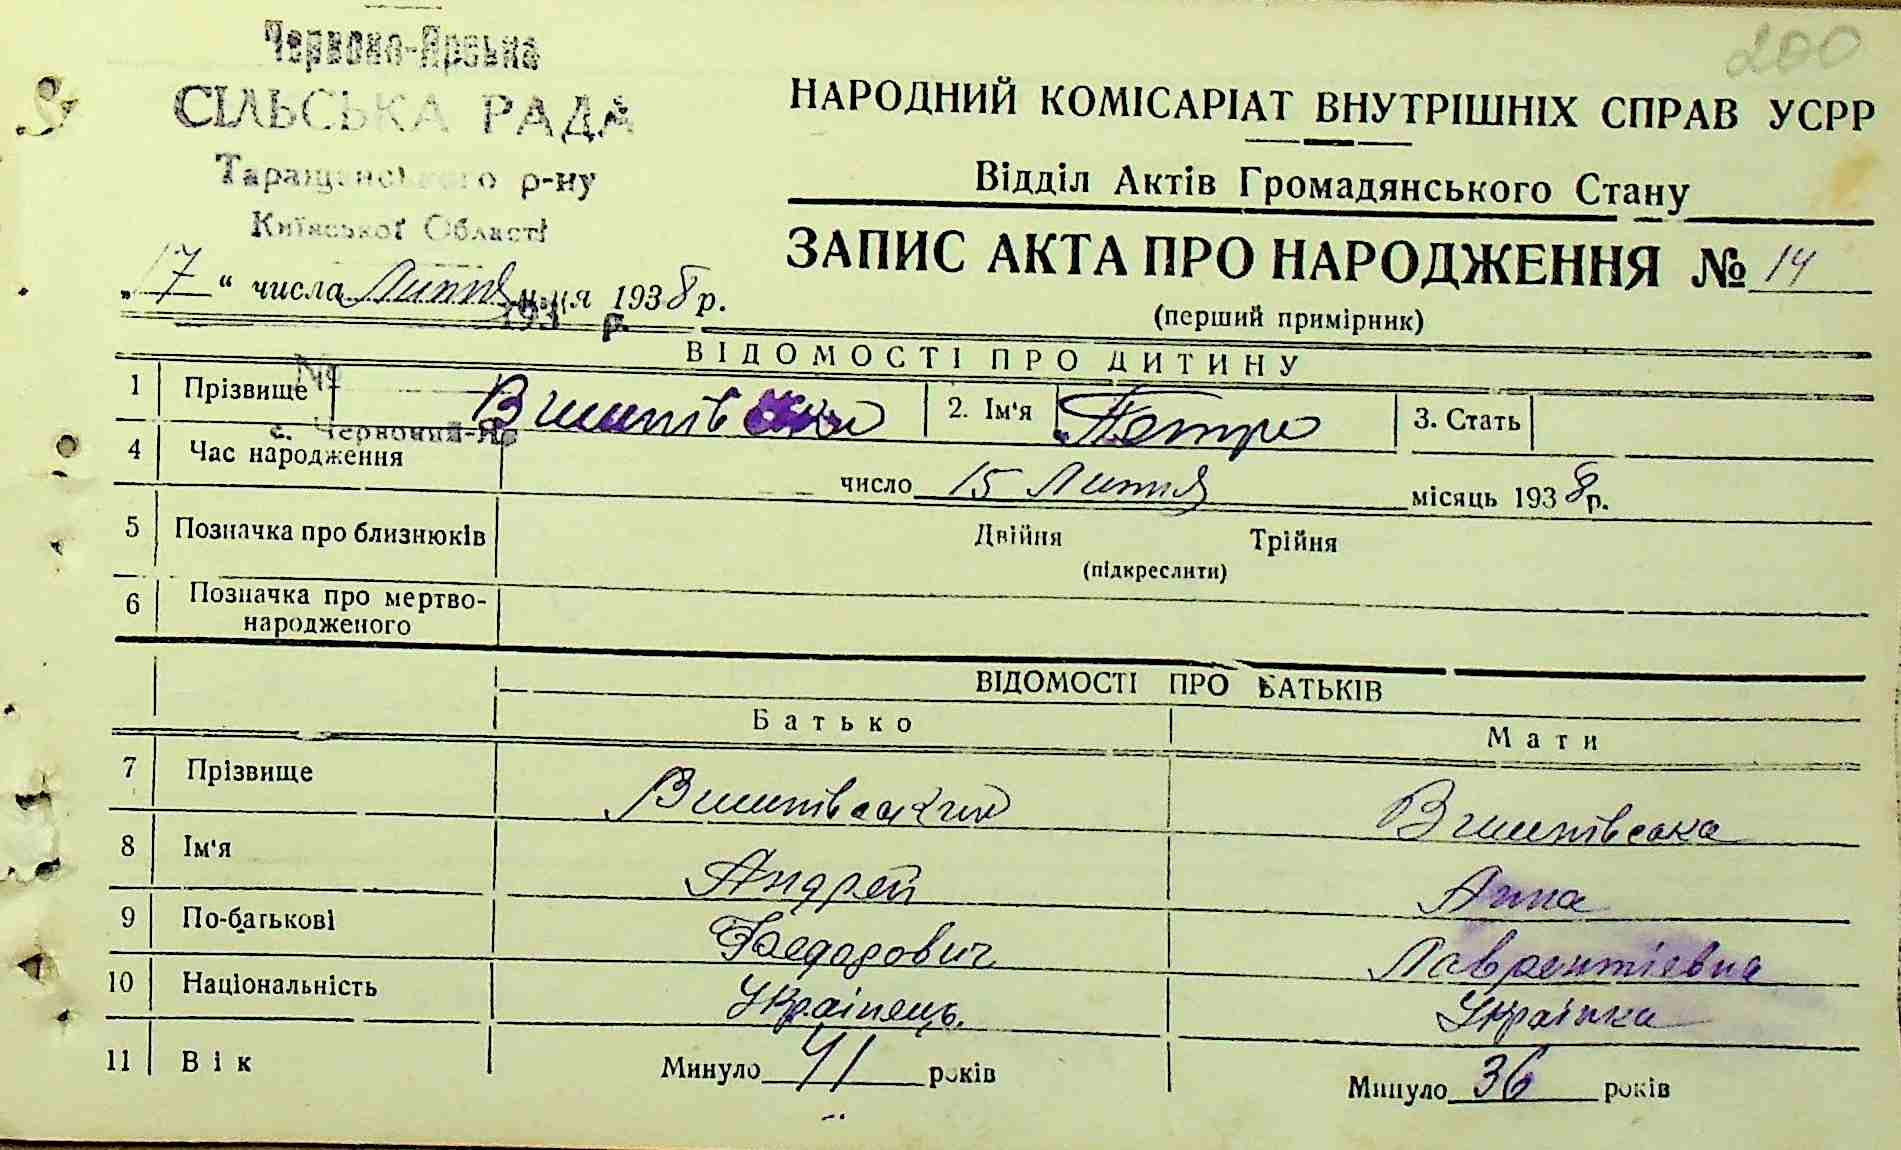 200
Червоно-Ярська
СІЛЬСЬКА РАДА
Таращанського р-ну
Київської Області
НАРОДНИЙ КОМІСАРІАТ ВНУТРІШНІХ СПРАВ УСРР
Відділ Актів Громадянського Стану
ЗАПИС АКТА ПРО НАРОДЖЕННЯ № 14
(перший примірник)
„17“ числа Липня м-ця 1938 р.
193 р.
ВІДОМОСТІ ПРО ДИТИНУ
№
1 Прізвище 2. Ім'я Петро 3. Стать
с. Червоний-Яр
4 Час народження число 15 Липня місяць 1938 р.
5 Позначка про близнюків Двійня Трійня
(підкреслити)
6 Позначка про мертво-
народженого
ВІДОМОСТІ ПРО БАТЬКІВ
Батько Мати
7 Прізвище
8 Ім'я Андрей Анна
9 По-батькові Феодорович Лаврентіевна
10 Національність Українець. Українка
11 Вік Минуло 41 років Минуло 36 років